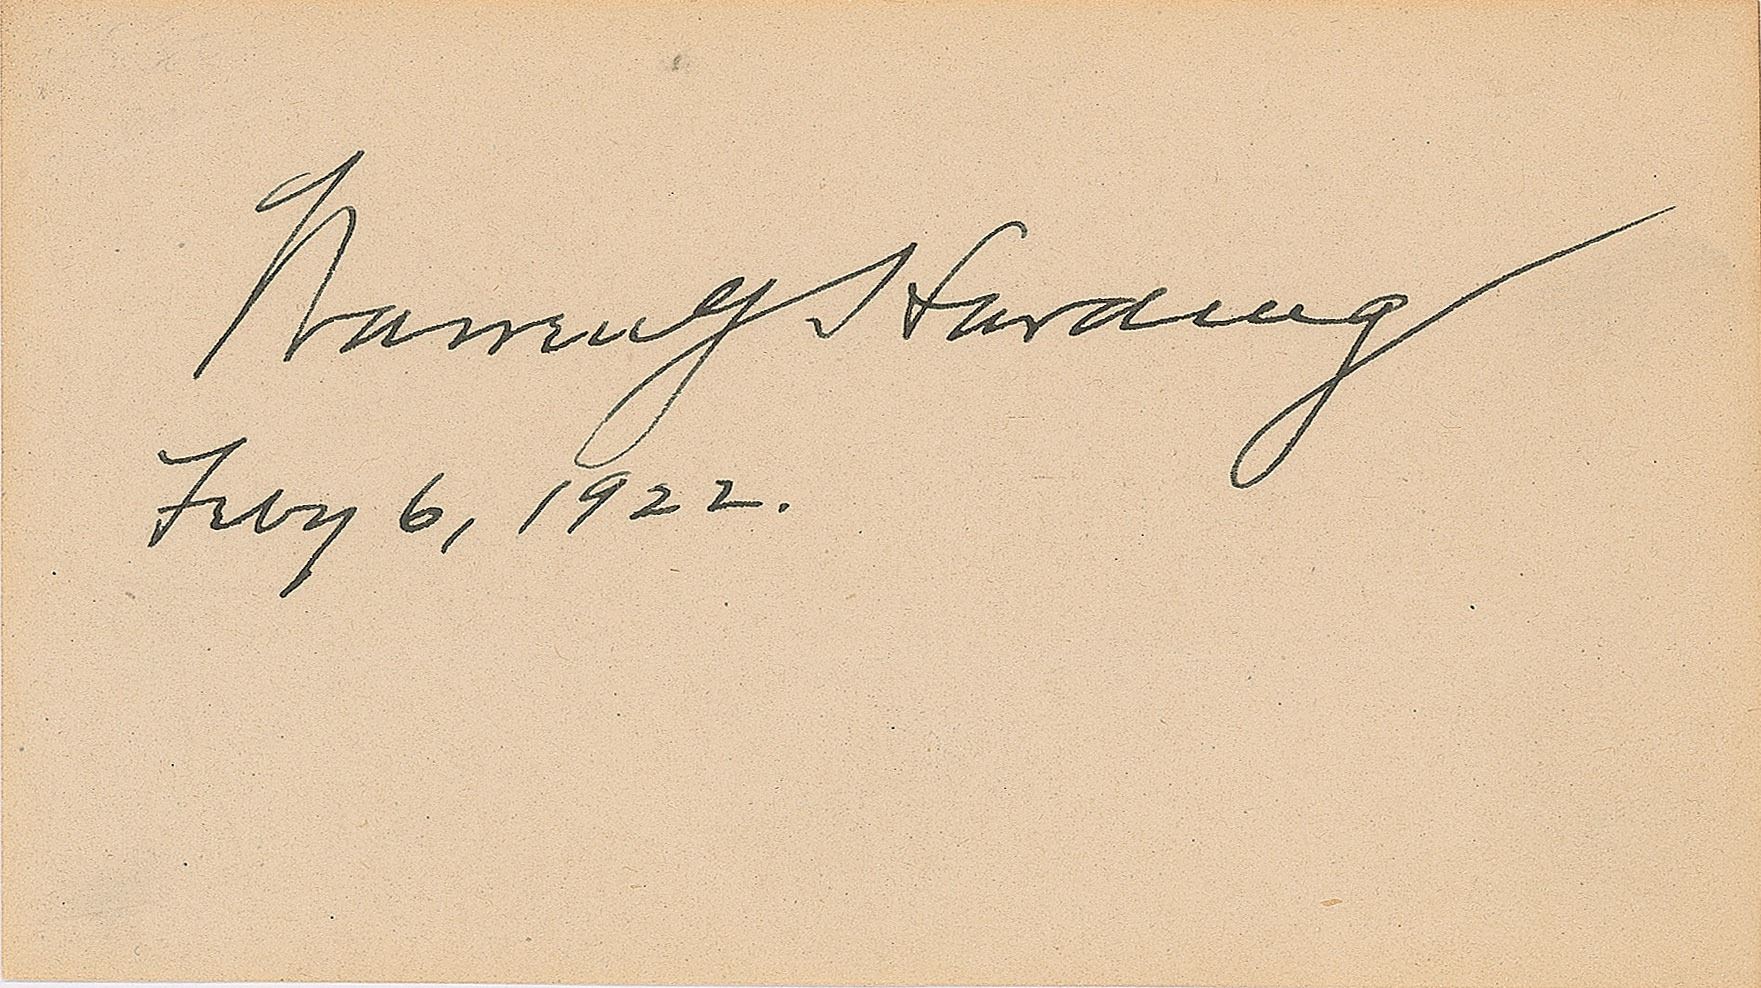 Warren G Harding
Feby 6, 1922.